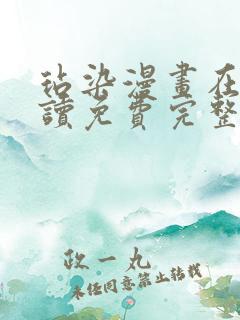 玷染漫畫在
讀免費完整
政一丸
未任同意禁止轉載